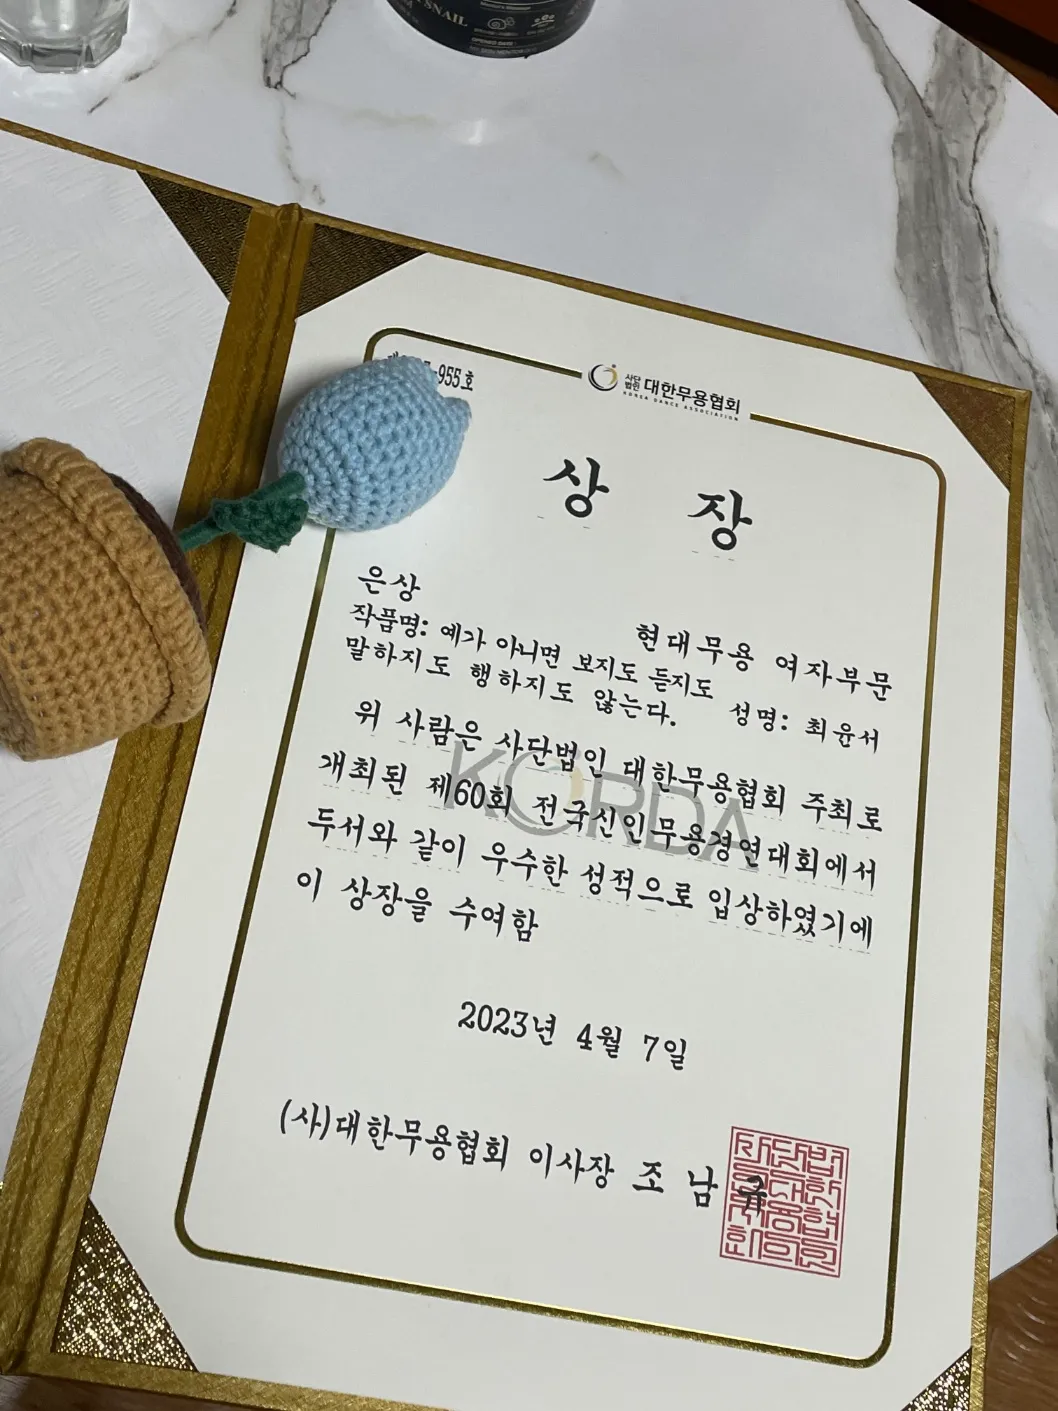 SNAIL
955호
사단법인 대한무용협회
KOREA DANCE ASSOCIATION
상 장
은상
현대무용 여자부문
작품명: 예가 아니면 보지도 듣지도
말하지도 행하지도 않는다.
성명: 최윤서
위 사람은 사단법인 대한무용협회 주최로
개최된 제60회 전국신인무용경연대회에서
두서와 같이 우수한 성적으로 입상하였기에
이 상장을 수여함
KORDA
2023년 4월 7일
(사)대한무용협회 이사장 조 남 규